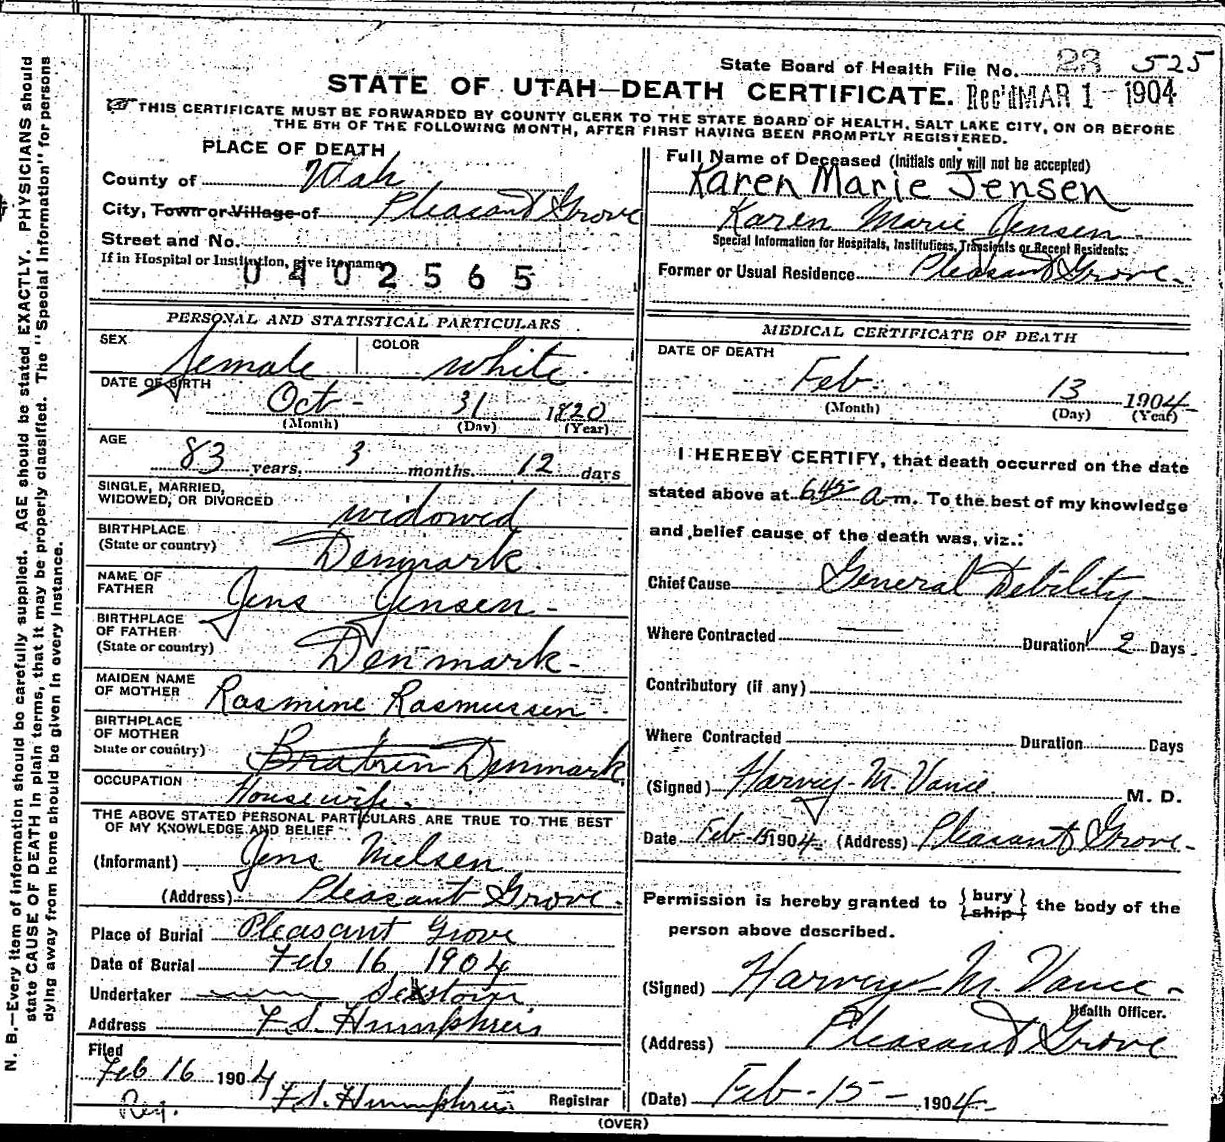 State Board of Health File No. 23 525
STATE OF UTAH—DEATH CERTIFICATE. Rec'd MAR 1 - 1904
THIS CERTIFICATE MUST BE FORWARDED BY COUNTY CLERK TO THE STATE BOARD OF HEALTH, SALT LAKE CITY, ON OR BEFORE
THE 5TH OF THE FOLLOWING MONTH, AFTER FIRST HAVING BEEN PROMPTLY REGISTERED.
PLACE OF DEATH
County of Utah
City, Town or Village of Pleasant Grove
Street and No.
If in Hospital or Institution, give its name
0402565
PERSONAL AND STATISTICAL PARTICULARS
SEX female COLOR white
DATE OF BIRTH
Oct 31 1820
(Month) (Day) (Year)
AGE
83 years, 3 months, 12 days
SINGLE, MARRIED,
WIDOWED, OR DIVORCED widowed
BIRTHPLACE
(State or country) Denmark
NAME OF
FATHER Jens Jensen
BIRTHPLACE
OF FATHER
(State or country) Denmark
MAIDEN NAME
OF MOTHER Rasmine Rasmussen
BIRTHPLACE
OF MOTHER
State or country) Denmark
OCCUPATION Housewife
THE ABOVE STATED PERSONAL PARTICULARS ARE TRUE TO THE BEST
OF MY KNOWLEDGE AND BELIEF
(Informant) Jens Nielsen
(Address) Pleasant Grove.
Place of Burial Pleasant Grove
Date of Burial Feb 16 1904
Undertaker Sexton
Address F. S. Humphreis
Filed
Feb 16 1904
Reg. F. S. Humphreis Registrar
Full Name of Deceased (Initials only will not be accepted)
Karen Marie Jensen
Karen Marie Jensen
Special Information for Hospitals, Institutions, Transients or Recent Residents:
Former or Usual Residence Pleasant Grove.
MEDICAL CERTIFICATE OF DEATH
DATE OF DEATH
Feb. 13 1904
(Month) (Day) (Year)
I HEREBY CERTIFY, that death occurred on the date
stated above at 6 45 a m. To the best of my knowledge
and belief cause of the death was, viz.:
Chief Cause General Debility
Where Contracted — Duration 2 Days
Contributory (if any)
Where Contracted Duration Days
(Signed) Harvey M. Vance M. D.
Date Feb 15 1904 (Address) Pleasant Grove.
Permission is hereby granted to { bury / ship } the body of the
person above described.
(Signed) Harvey M. Vance
Health Officer.
(Address) Pleasant Grove
(Date) Feb - 15 - 1904
(OVER)
N. B.—Every item of information should be carefully supplied. AGE should be stated EXACTLY. PHYSICIANS should
state CAUSE OF DEATH in plain terms, that it may be properly classified. The "Special Information" for persons
dying away from home should be given in every instance.